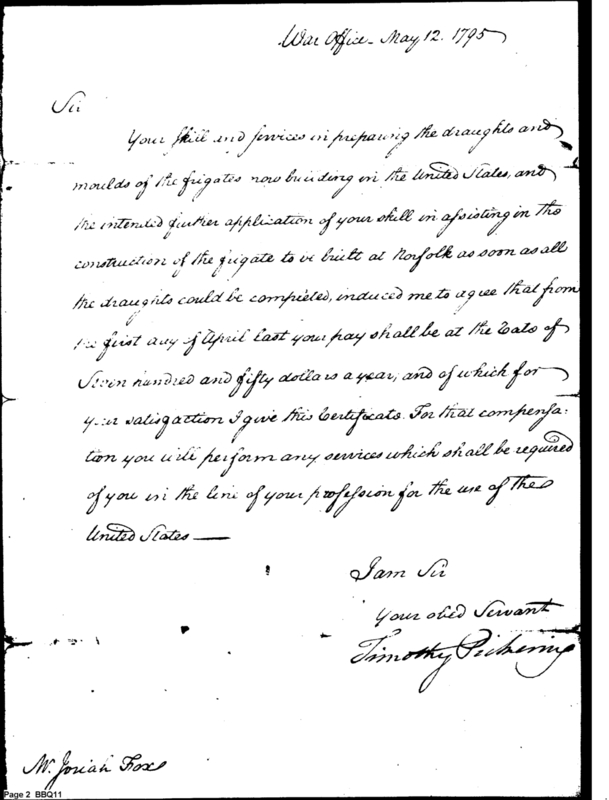 War Office - May 12. 1795
Sir
Your skill and services in preparing the draughts and
moulds of the frigates now building in the United States, and
the intended further application of your skill in assisting in the
construction of the frigate to be built at Norfolk as soon as all
the draughts could be completed, induced me to agree that from
the first day of April last your pay shall be at the rate of
Seven hundred and fifty dollars a year; and of which for
your satisfaction I give this Certificate. For that compensa:
tion you will perform any services which shall be required
of you in the line of your profession for the use of the
United States —
I am Sir
Your obed Servant
Timothy Pickering
Mr. Josiah Fox
Page 2 BBQ11